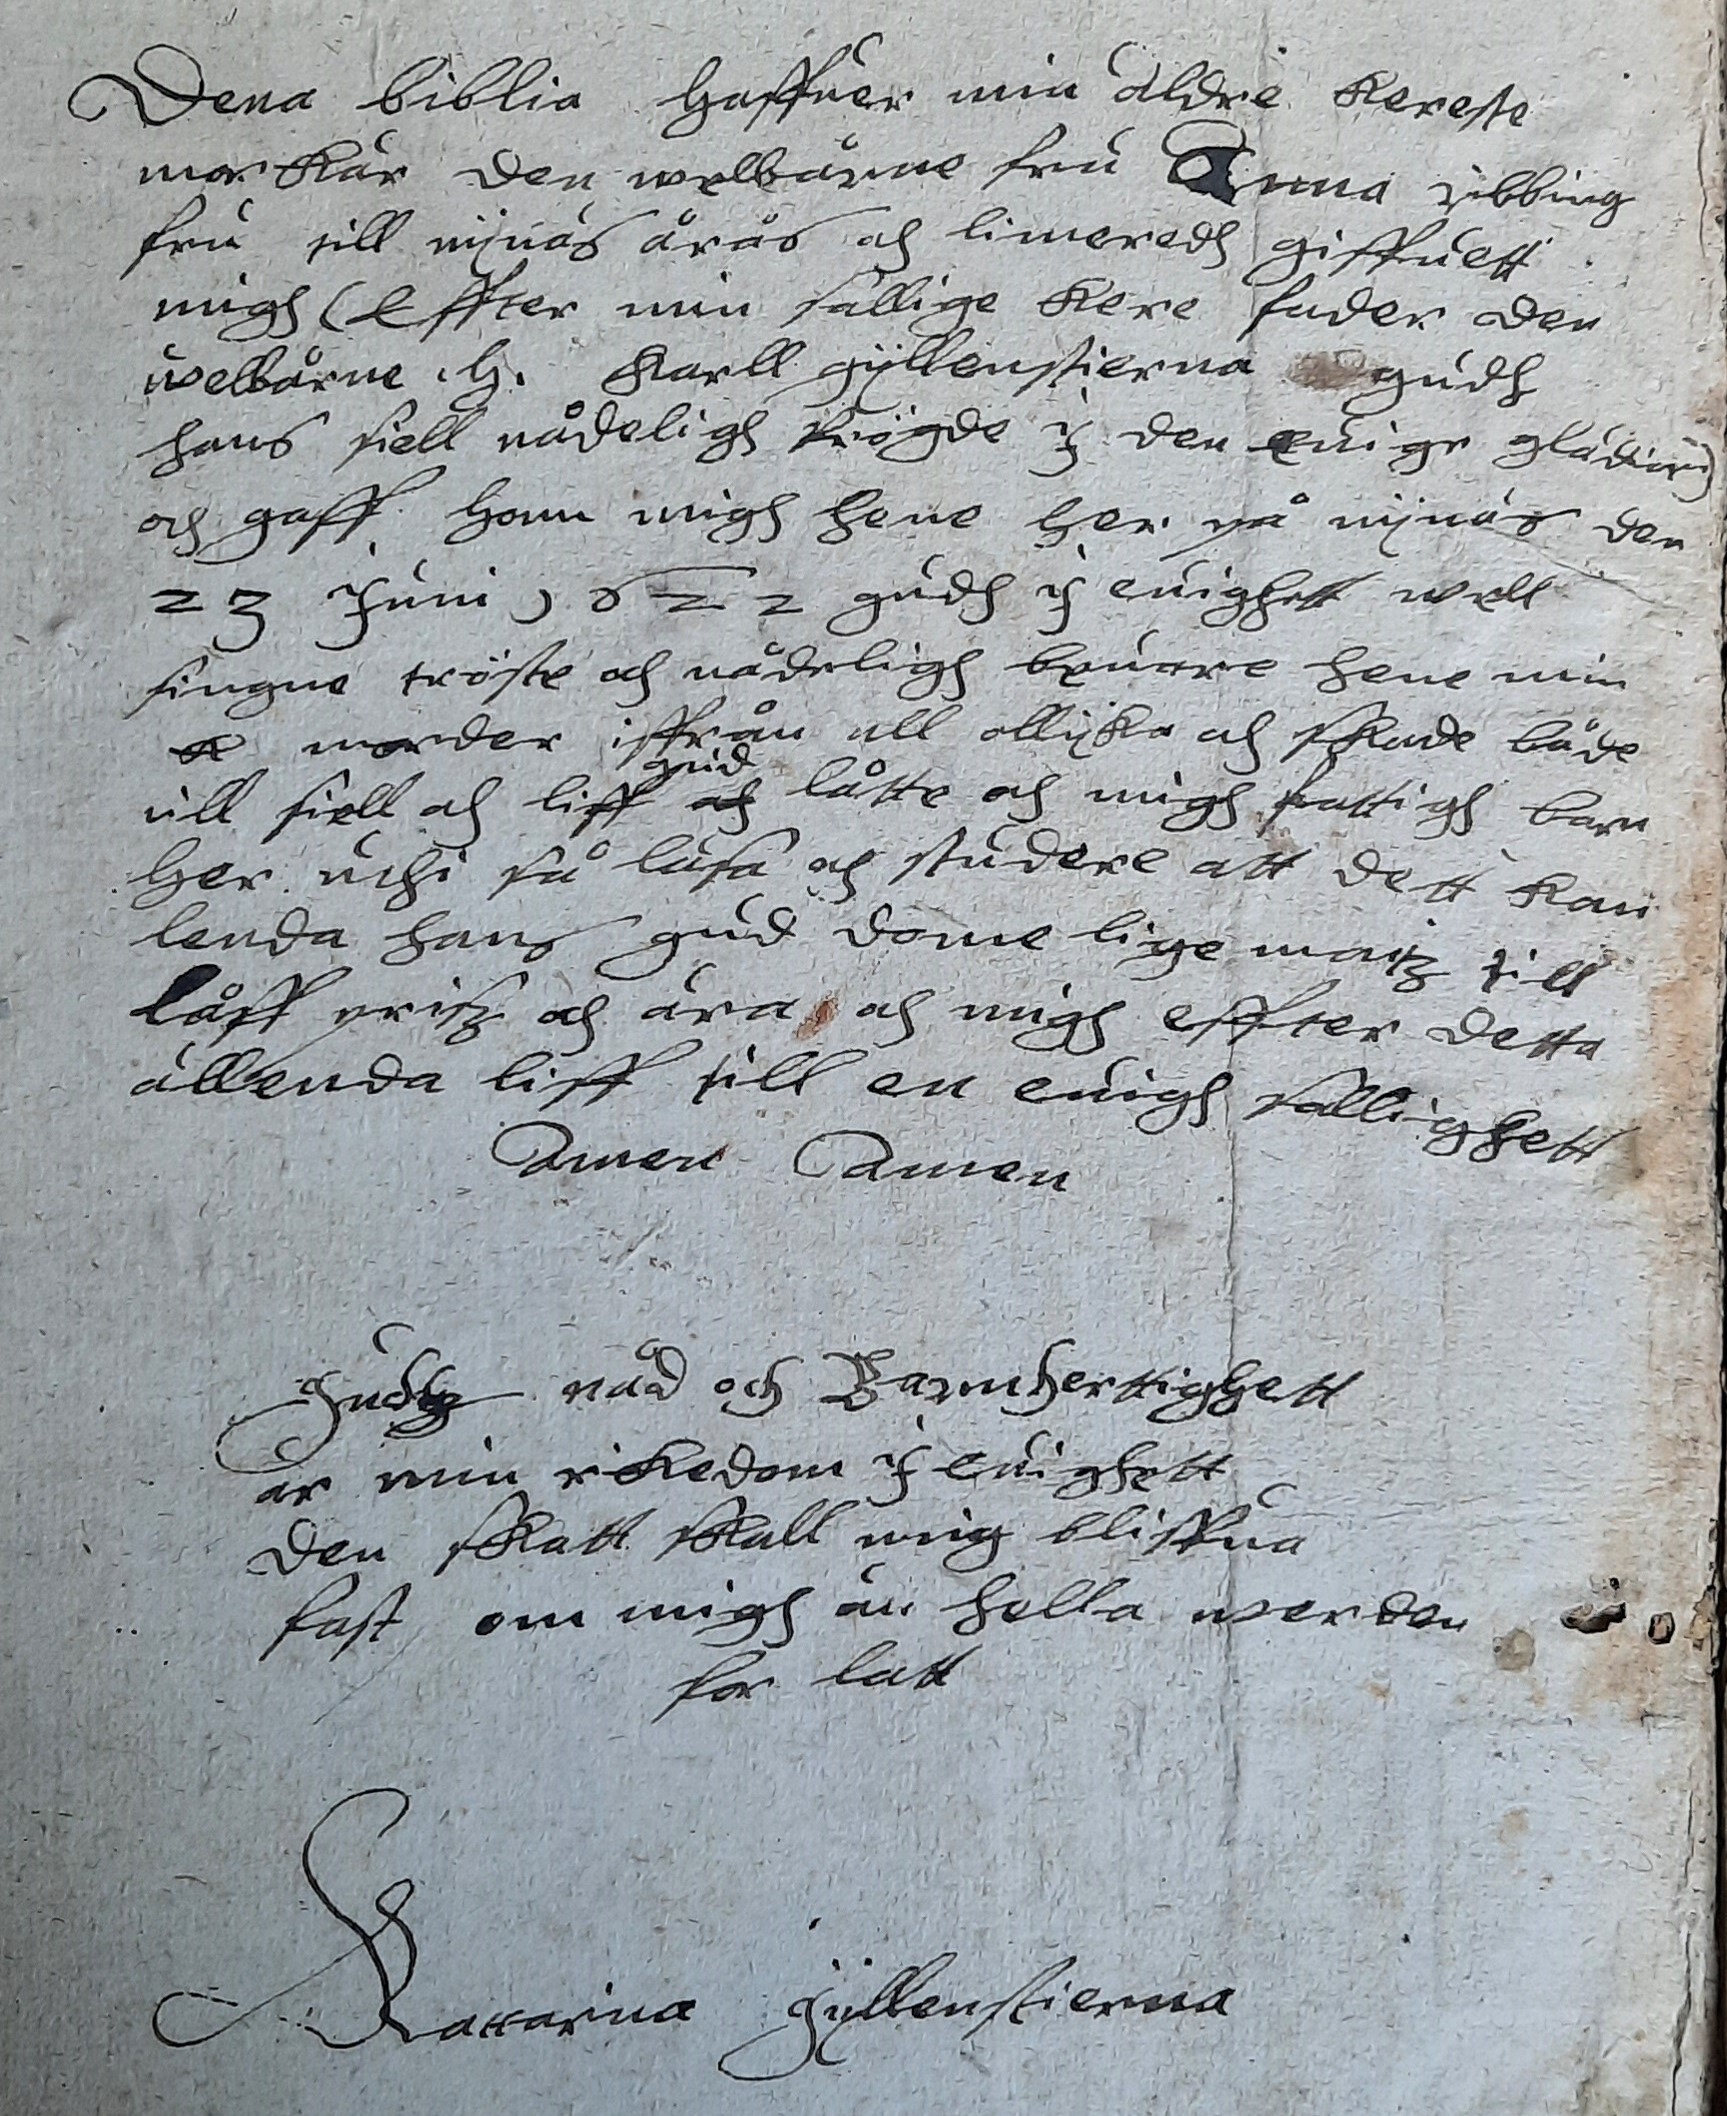 Dena biblia haffuer min äldre kereste
mor kär den welbårne fru Anna ribbing
fru till nynäs åräs och limeredh giffuett
migh (effter min sällige kere fader den
welbårne .H. karll gyllenstierna gudh
hans siell nådeligh frögde i den euige glädin)
och gaff hon migh hene her på nynäs den
23 Juni 1622 gudh i euighett well
singne tröste och nådeligh beuare hene min
morder iffrån all ollycka och skade både
till siell och liff och gud låtte och migh fattigh barn
her uthi så läsa och studere att dett kan
lenda hans gud domelige maitz till
låff pritz och ära och migh effter detta
ällenda liff till en euigh sallighett
amen amen
Gudtz nåd och Barmhertighett
är min rikedom i euighett
den skatt skall mig bliffua
fast om migh än hella werden
for latt
Katarina gyllenstierna